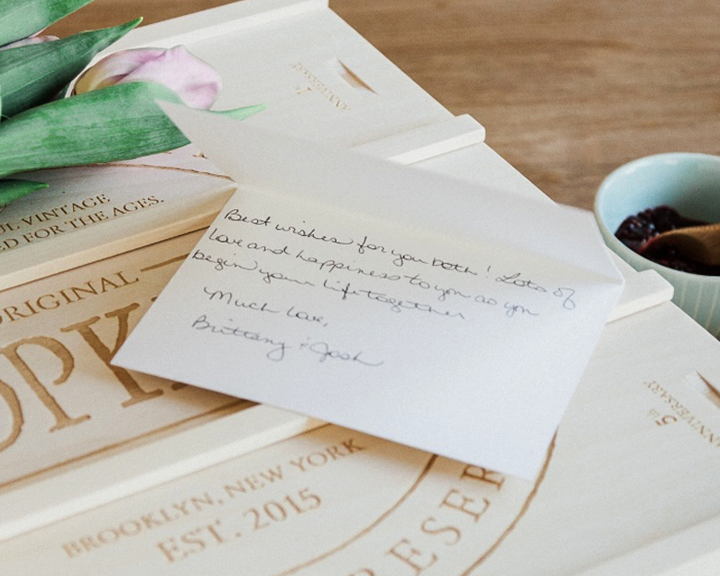 1st
ANNIVERSARY
UL VINTAGE
D FOR THE AGES.
ORIGINAL
OPKI
Best wishes for you both! Lots of
love and happiness to you as you
begin your life together
Much Love,
Brittany & Josh
5th
ANNIVERSARY
BROOKLYN, NEW YORK
EST. 2015
RESER